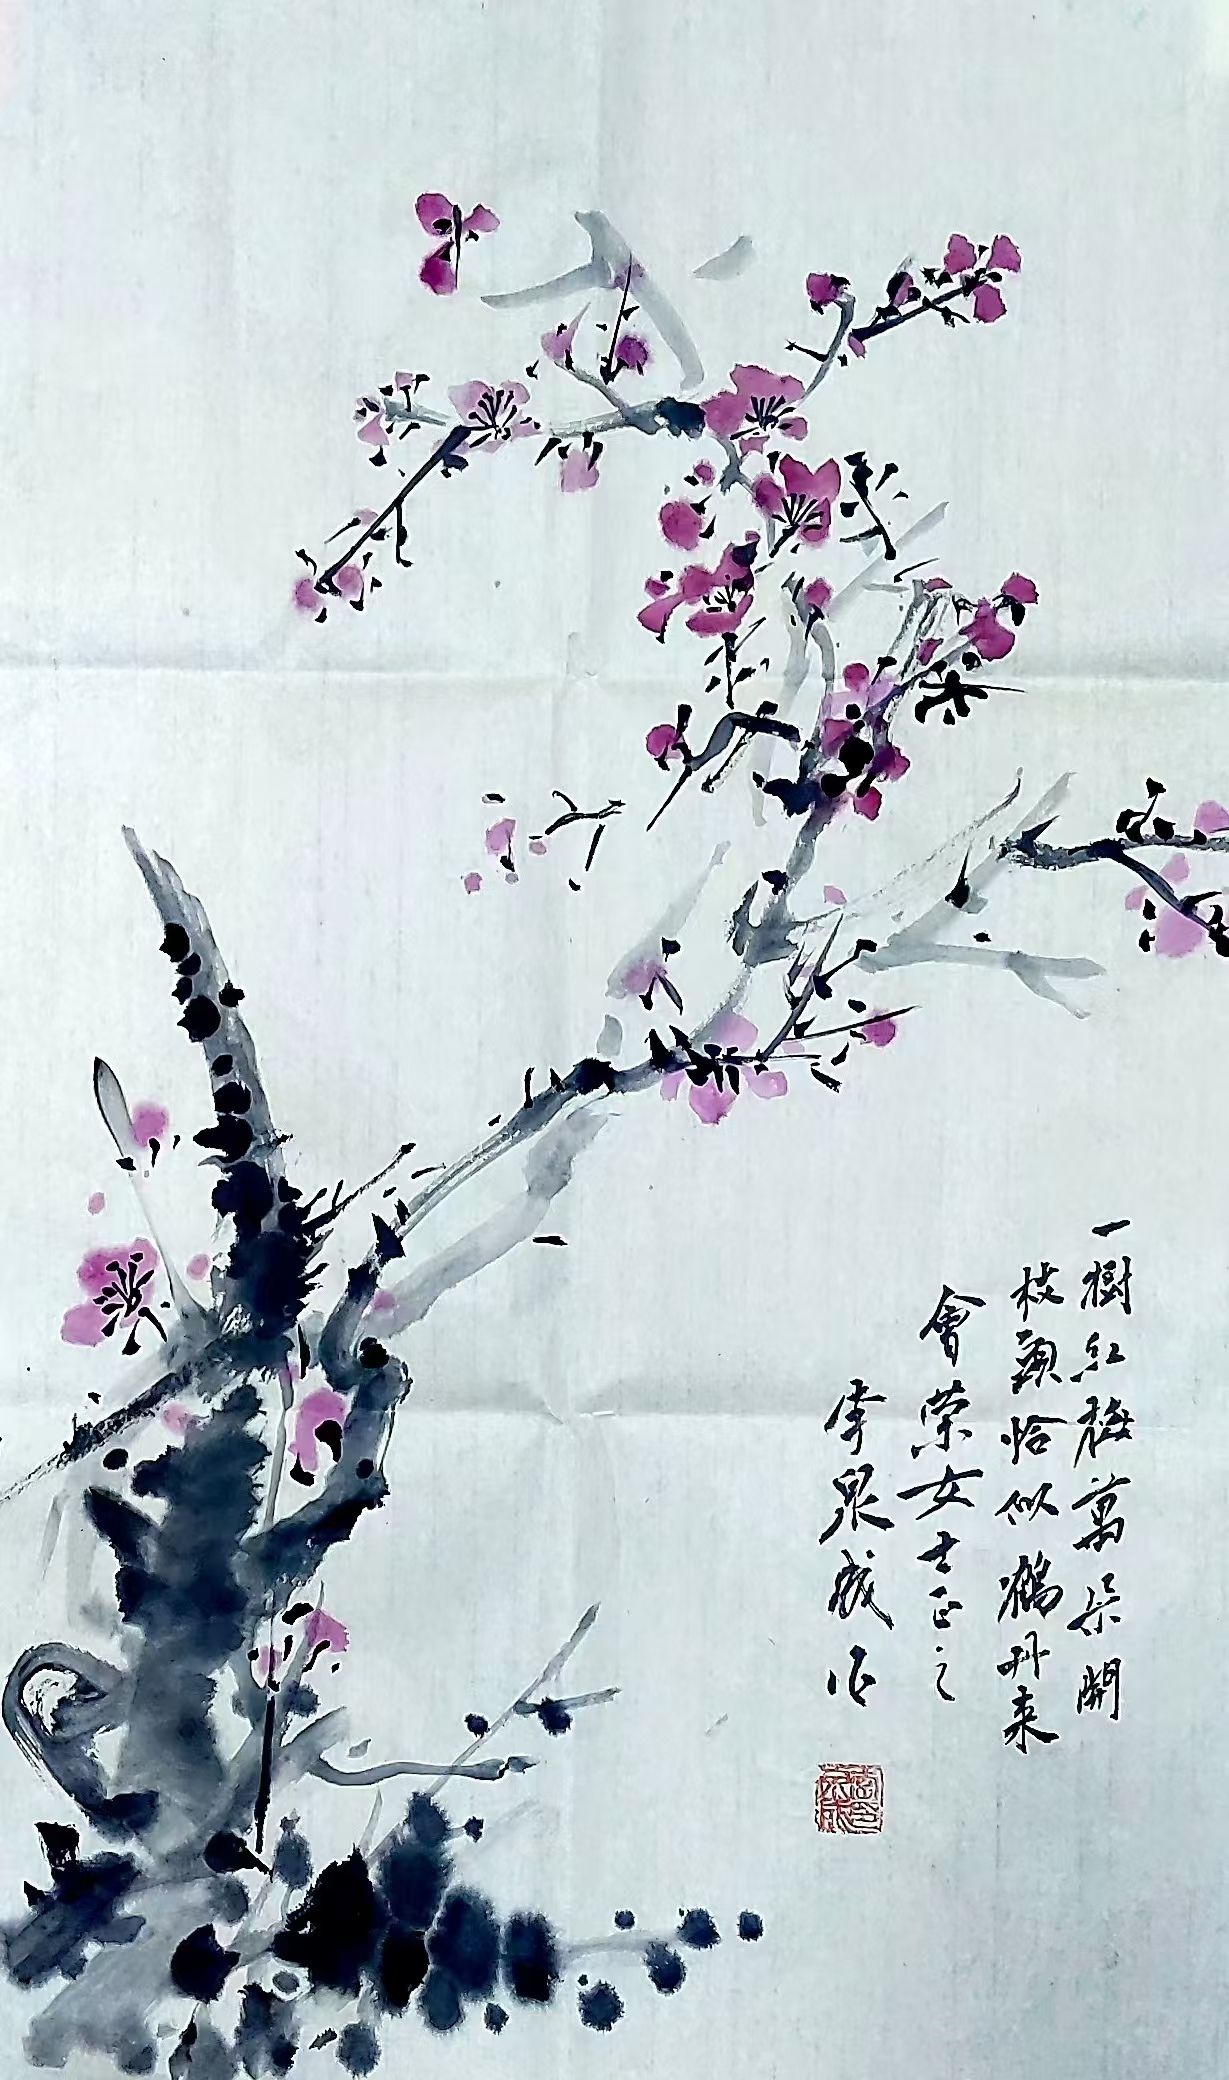 一樹紅梅萬朵開
枝頭恰似鶴升来
會荣女士正之
李泉成作